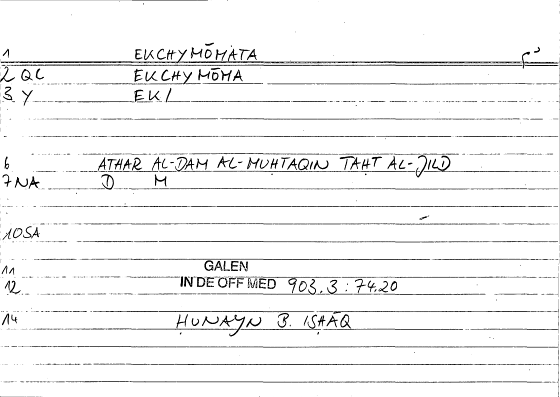 1 EKCHYMŌMATA
2 QC EKCHYMŌMA
3 Y EK/
6 ATHAR AL-DAM AL-MUḤTAQIN TAḤT AL-JILD
7 NA D M
10 SA
11 GALEN
12 IN DE OFF MED 903.3:74.20
14 ḤUNAYN B. ISḤĀQ